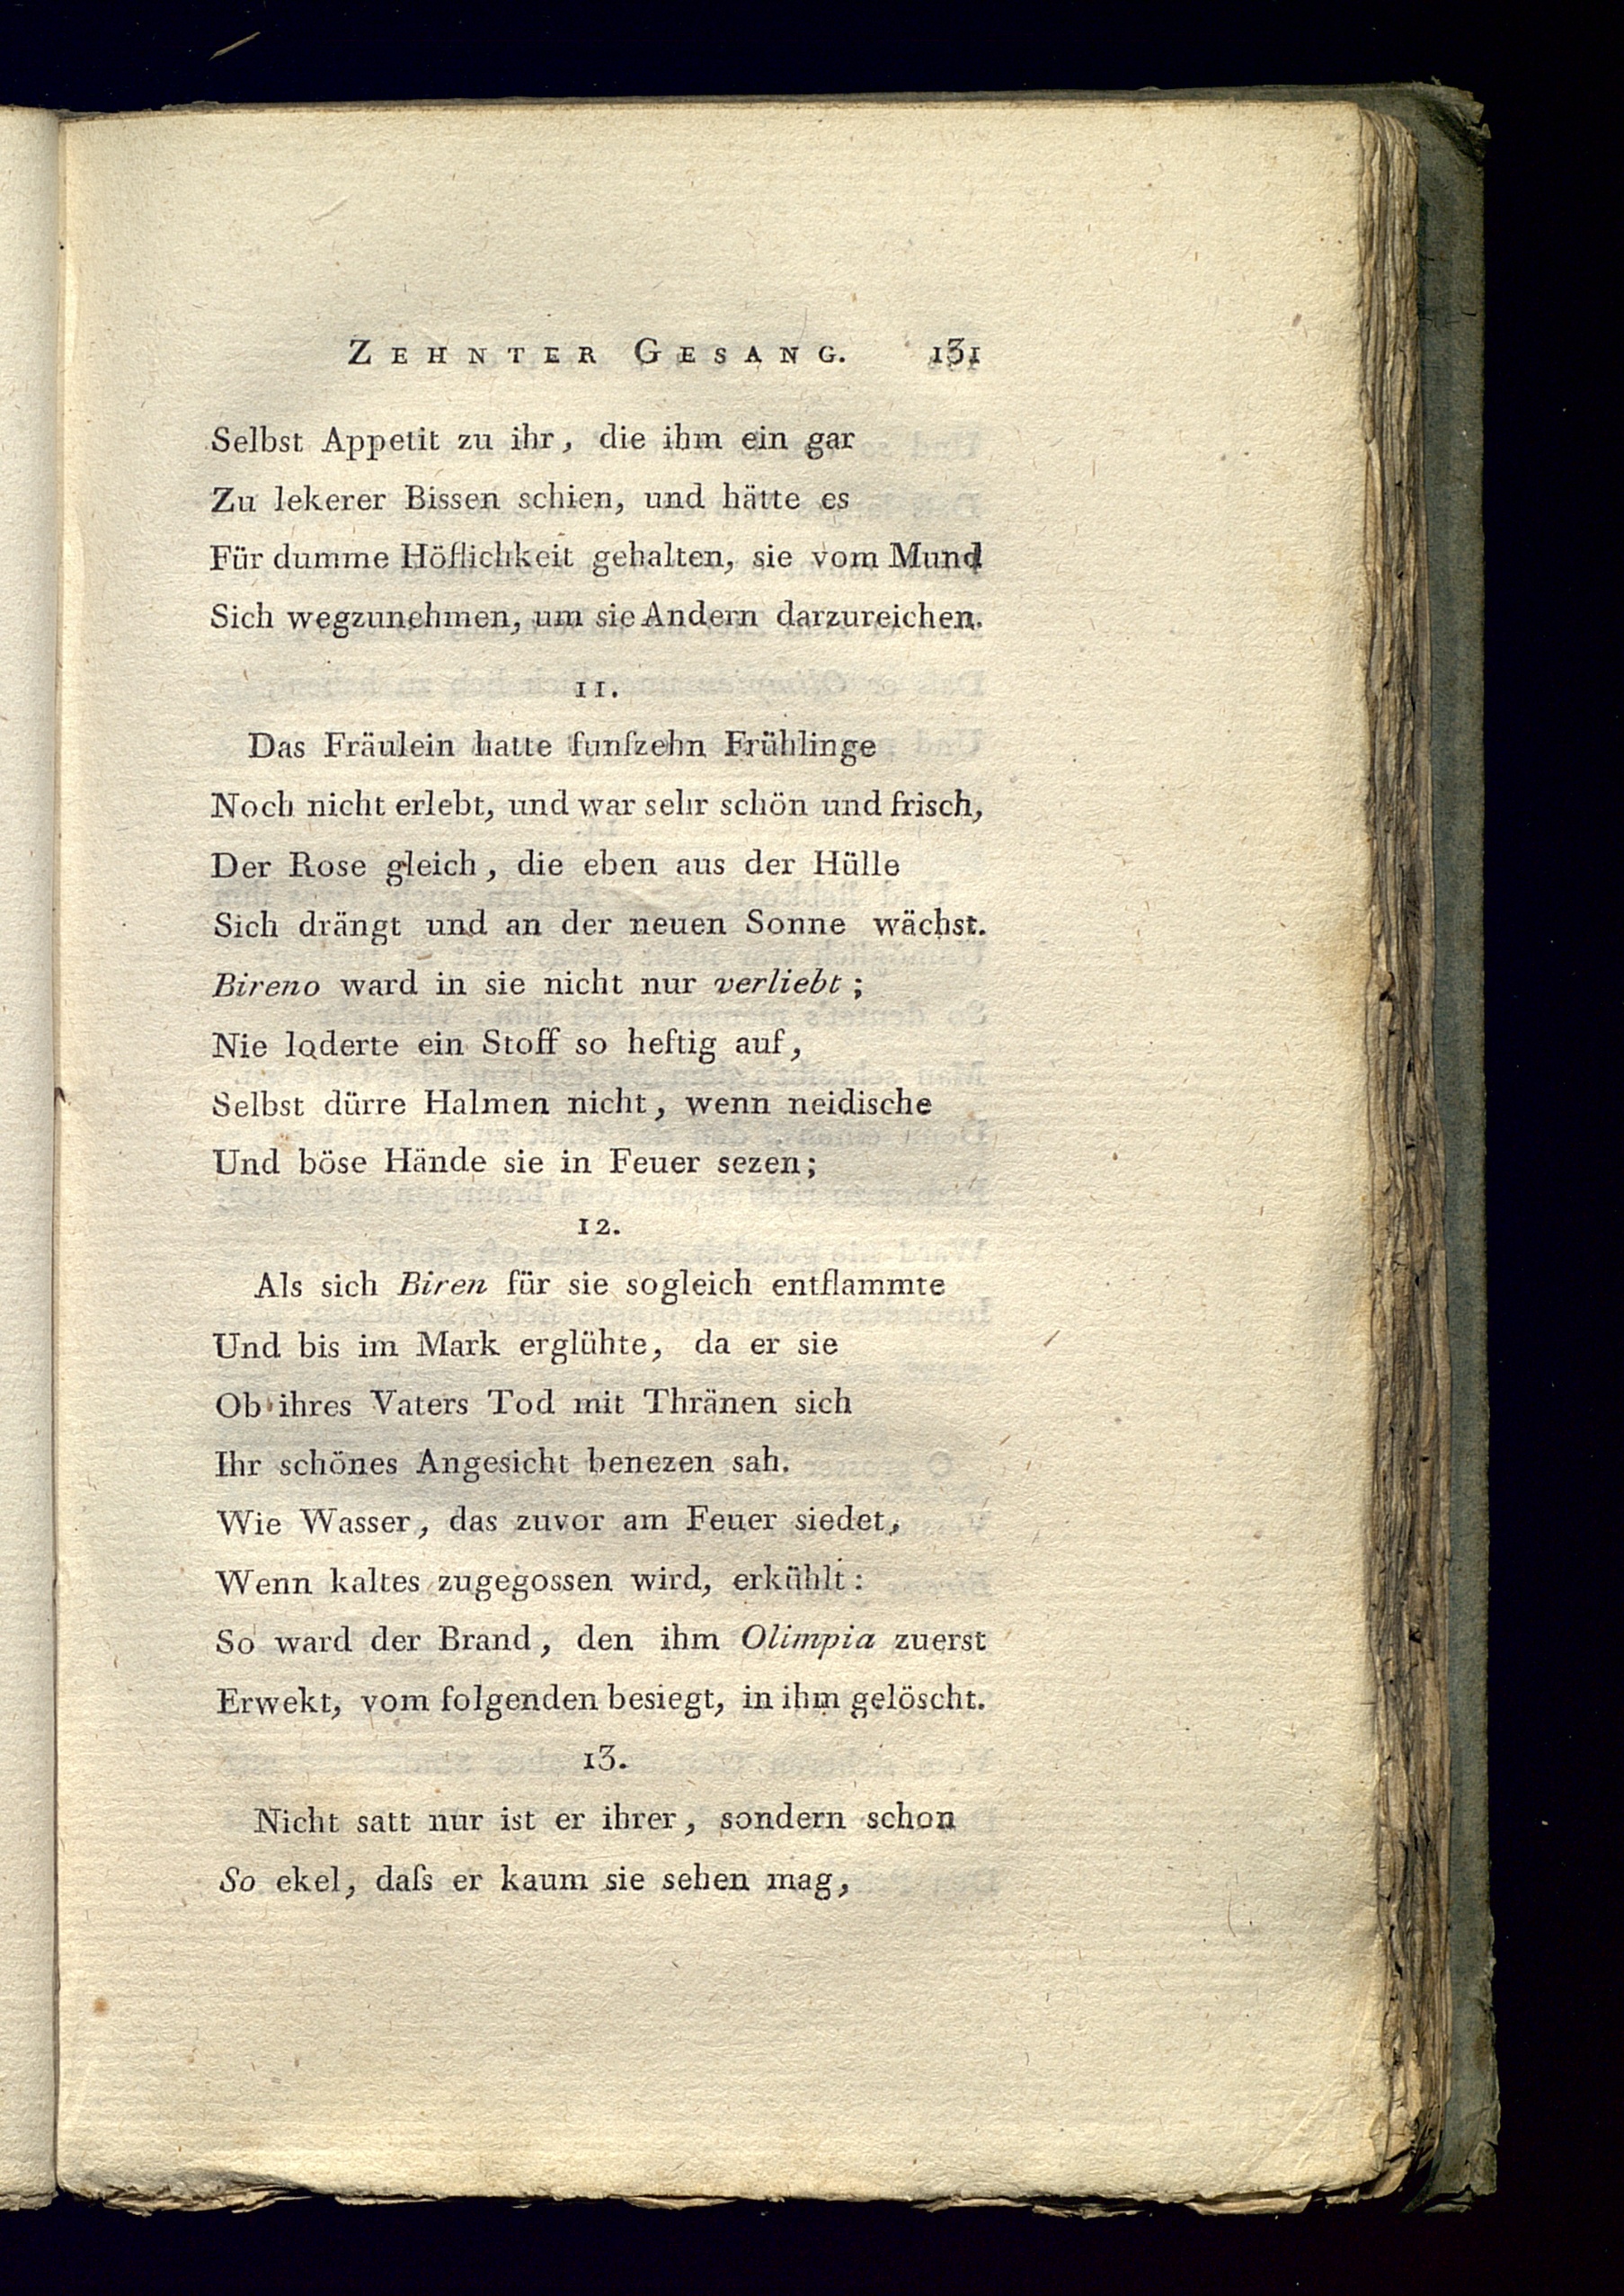 ZEHNTER GESANG. 131
Selbst Appetit zu ihr, die ihm ein gar
Zu lekerer Bissen schien, und hätte es
Für dumme Höflichkeit gehalten, sie vom Mund
Sich wegzunehmen, um sie Andern darzureichen.
11.
Das Fräulein hatte funfzehn Frühlinge
Noch nicht erlebt, und war sehr schön und frisch,
Der Rose gleich, die eben aus der Hülle
Sich drängt und an der neuen Sonne wächst.
Bireno ward in sie nicht nur verliebt;
Nie loderte ein Stoff so heftig auf,
Selbst dürre Halmen nicht, wenn neidische
Und böse Hände sie in Feuer sezen;
12.
Als sich Biren für sie sogleich entflammte
Und bis im Mark erglühte, da er sie
Ob ihres Vaters Tod mit Thränen sich
Ihr schönes Angesicht benezen sah.
Wie Wasser, das zuvor am Feuer siedet,
Wenn kaltes zugegossen wird, erkühlt:
So ward der Brand, den ihm Olimpia zuerst
Erwekt, vom folgenden besiegt, in ihm gelöscht.
13.
Nicht satt nur ist er ihrer, sondern schon
So ekel, daſs er kaum sie sehen mag,